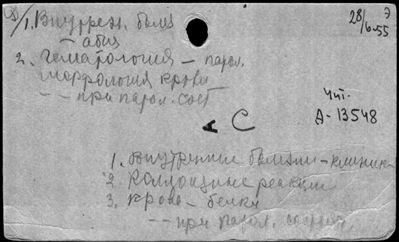 1. Внутрен.болез
28/6-55
2. Гематология – патол.
морфология крови
– – при патол. сост
Чит.
А-13548
А С
1. Внутренние болезни – клиника
2. Коллоидные реакции
3. Кровь – белки
– – при патол.